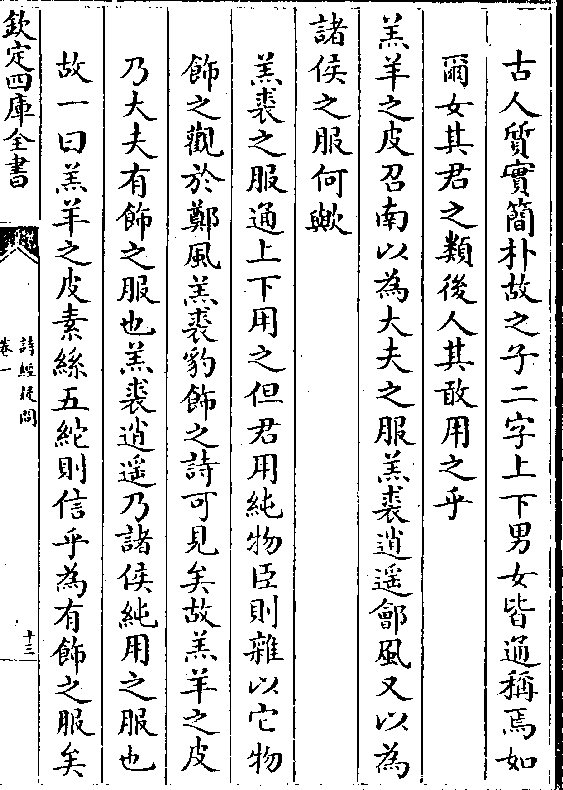 古人質實簡朴故之子二字上下男女皆通稱焉如
爾女其君之類後人其敢用之乎
羔羊之皮召南以為大夫之服羔裘逍遥鄶風又以為
諸侯之服何歟
羔裘之服通上下用之但君用純物臣則雜以它物
飾之觀於鄭風羔裘豹飾之詩可見矣故羔羊之皮
乃大夫有飾之服也羔裘逍遥乃諸侯純用之服也
故一曰羔羊之皮素絲五紽則信乎為有飾之服矣
欽定四庫全書
詩經疑問
卷一
十三